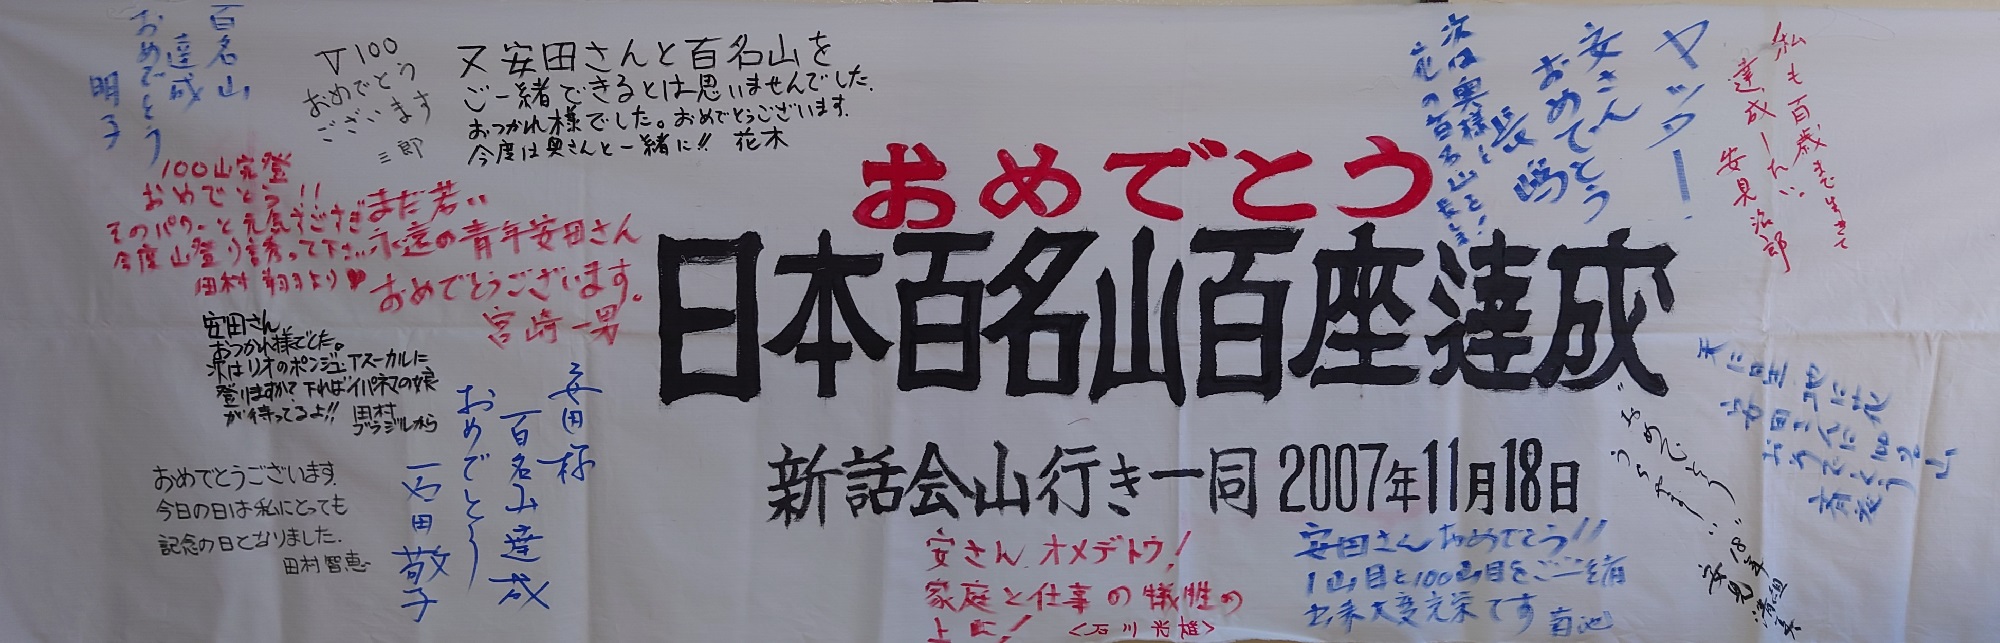 おめでとう
日本百名山百座達成
新話会山行き一同 2007年11月18日
百名山
達成
おめでとう
明子
▽100
おめでとう
ございます
三郎
又安田さんと百名山を
ご一緒できるとは思いませんでした.
おつかれ様でした。おめでとうございます.
今度は奥さんと一緒に!! 花木
100山完登
おめでとう!!
そのパワーと元気すごすぎ
今度山登り誘って下さい
田村 より♥
まだ若い
永遠の青年安田さん
おめでとうございます。
宮崎一男
安田さん
おつかれ様でした。
次はリオのポンジュアスーカルに
登りますか? 下ればイパネマの娘
が待ってるよ!! 田村
ブラジルから
おめでとうございます.
今日の日は私にとっても
記念の日となりました.
田村智恵
安田様
百名山達成
おめでとう
石田敬子
ヤッター!
安さん
おめでとう
長嶋
次は奥様と
花の百名山を
私も百歳まで生きて
達成したい
安見治郎
天に星 地に花
安田さんに
おめでとう
安さん オメデトウ!
家庭と仕事の犠牲の
上に! <石川光雄>
安田さんおめでとう!!
1山目と100山目をご一緒
出来大変光栄です 菊池